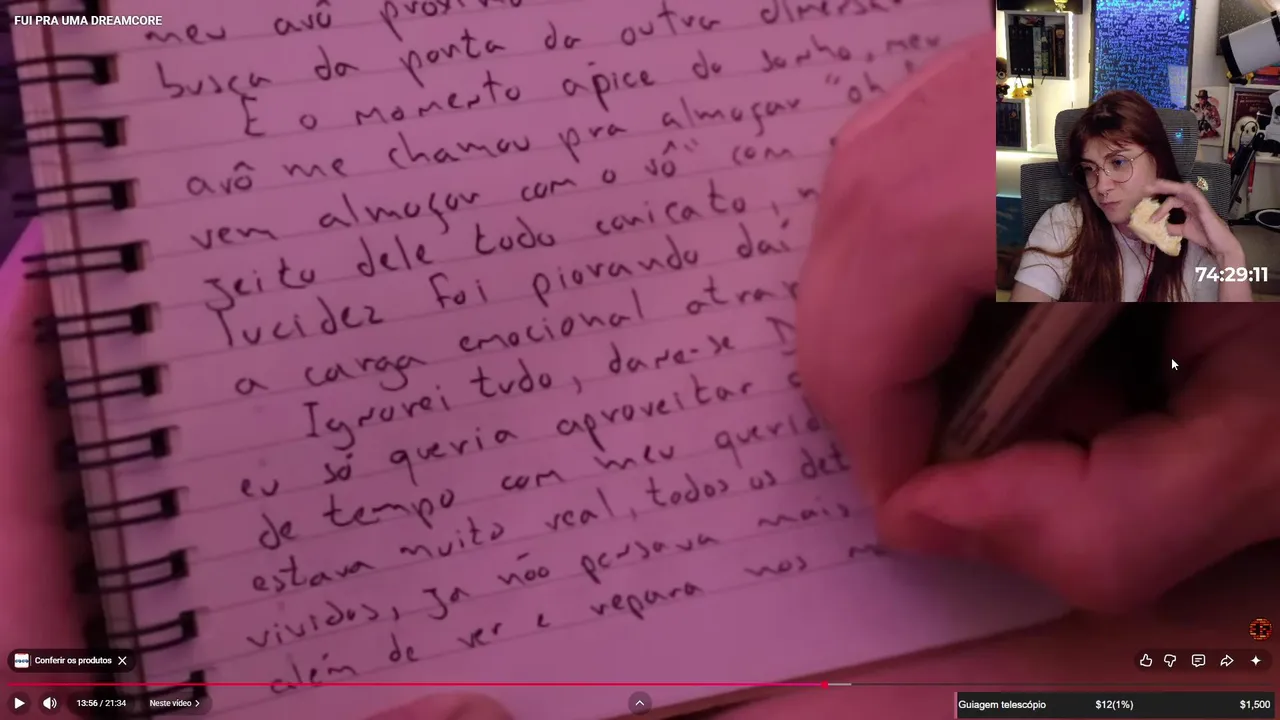 FUI PRA UMA DREAMCORE
meu avô
busca da ponta da outra
E o momento ápice do sonho, meu
avô me chamou pra almoçar "oh
vem almoçar com o vô" com
jeito dele todo
lucidez foi piorando daí
a carga emocional
Ignorei tudo, dane-se
eu só queria aproveitar
de tempo com meu
estava muito real, todos os
vividos, já não pensava mais
além de ver e repara nos
74:29:11
Conferir os produtos
13:56 / 21:34
Neste vídeo
Guiagem telescópio $12(1%) $1,500